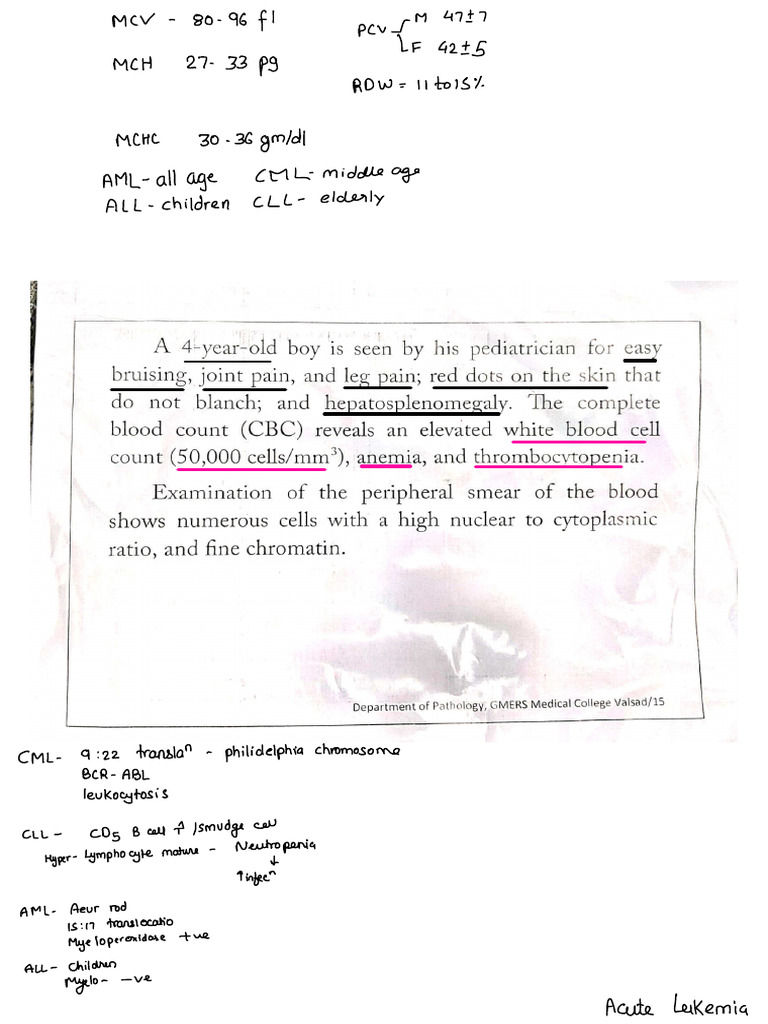 MCV - 80-96 fl
PCV M 47±7
F 42±5
MCH 27-33 pg
RDW = 11 to 15%
MCHC 30-36 gm/dl
AML - all age CML - middle age
ALL - children CLL - elderly
A 4-year-old boy is seen by his pediatrician for easy
bruising, joint pain, and leg pain; red dots on the skin that
do not blanch; and hepatosplenomegaly. The complete
blood count (CBC) reveals an elevated white blood cell
count (50,000 cells/mm³), anemia, and thrombocytopenia.
Examination of the peripheral smear of the blood
shows numerous cells with a high nuclear to cytoplasmic
ratio, and fine chromatin.
Department of Pathology, GMERS Medical College Valsad/15
CML- 9:22 translaⁿ - philidelphia chromosome
BCR-ABL
leukocytosis
CLL - CD5 B cell ↑ /smudge cell
Hyper- Lymphocyte mature - Neutropenia
↓
↑infecⁿ
AML- Aeur rod
15:17 translocatio
Myeloperoxidase +ve
ALL - Children
Myelo- -ve
Acute Leukemia